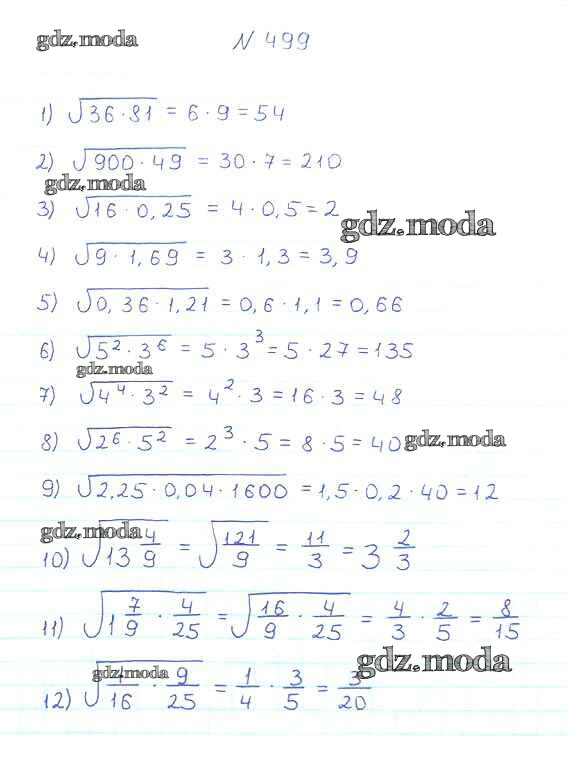 gdz.moda
N 499
1) √36·81 = 6·9 = 54
2) √900·49 = 30·7 = 210
gdz.moda
3) √16·0,25 = 4·0,5 = 2
gdz.moda
4) √9·1,69 = 3·1,3 = 3,9
5) √0,36·1,21 = 0,6·1,1 = 0,66
6) √5²·3⁶ = 5·3³ = 5·27 = 135
gdz.moda
7) √4⁴·3² = 4²·3 = 16·3 = 48
8) √2⁶·5² = 2³·5 = 8·5 = 40
gdz.moda
9) √2,25·0,04·1600 = 1,5·0,2·40 = 12
gdz.moda
10) √13 4/9 = √121/9 = 11/3 = 3 2/3
11) √1 7/9 · 4/25 = √16/9 · 4/25 = 4/3 · 2/5 = 8/15
gdz.moda
gdz.moda
12) √1/16 · 9/25 = 1/4 · 3/5 = 3/20